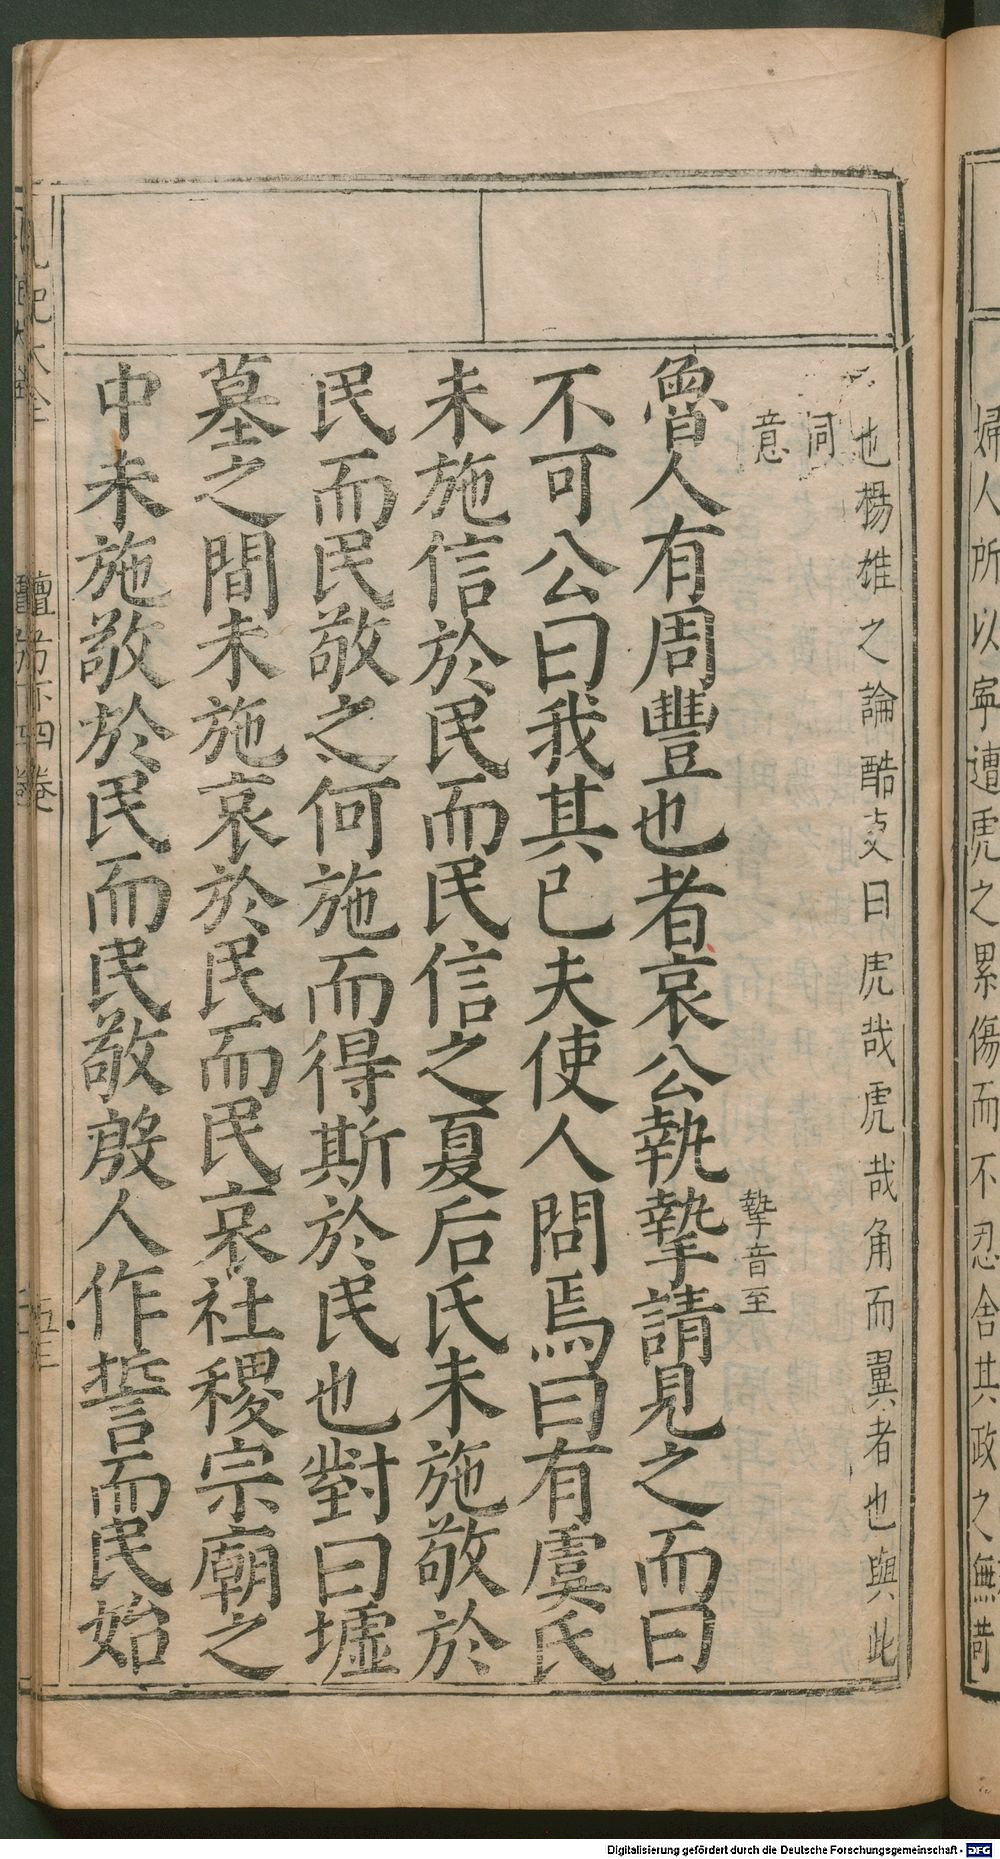 婦人所以寧遭虎之累傷而不忍舍其政之無苛
也楊雄之論酷吏曰虎哉虎哉角而翼者也與此
同
意
摯音至
魯人有周豐也者哀公執摯請見之而曰
不可公曰我其已夫使人問焉曰有虞氏
未施信於民而民信之夏后氏未施敬於
民而民敬之何施而得斯於民也對曰墟
墓之間未施哀於民而民哀社稷宗廟之
中未施敬於民而民敬殷人作誓而民始
檀弓下四卷
Digitalisierung gefördert durch die Deutsche Forschungsgemeinschaft - DFG